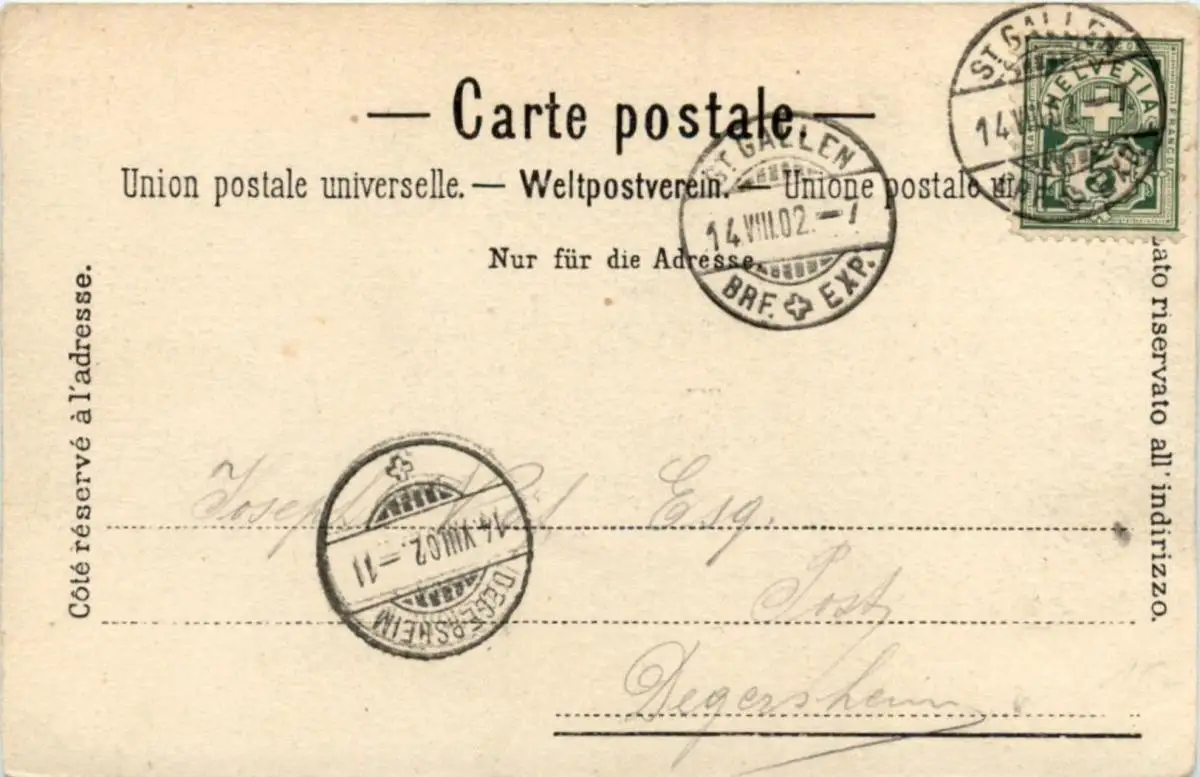 — Carte postale. —
Union postale universelle. — Weltpostverein. — Unione postale
Nur für die Adresse.
Côté réservé à l'adresse.
lato riservato all' indirizzo.
ST. GALLEN
14.VIII.02.–7
BRF. EXP.
ST. GALLEN
14.VIII.02.–7
HELVETIA
5
FRANCO
Joseph Esq.
Post
Degersheim
14.VIII.02.–11
DEGERSHEIM